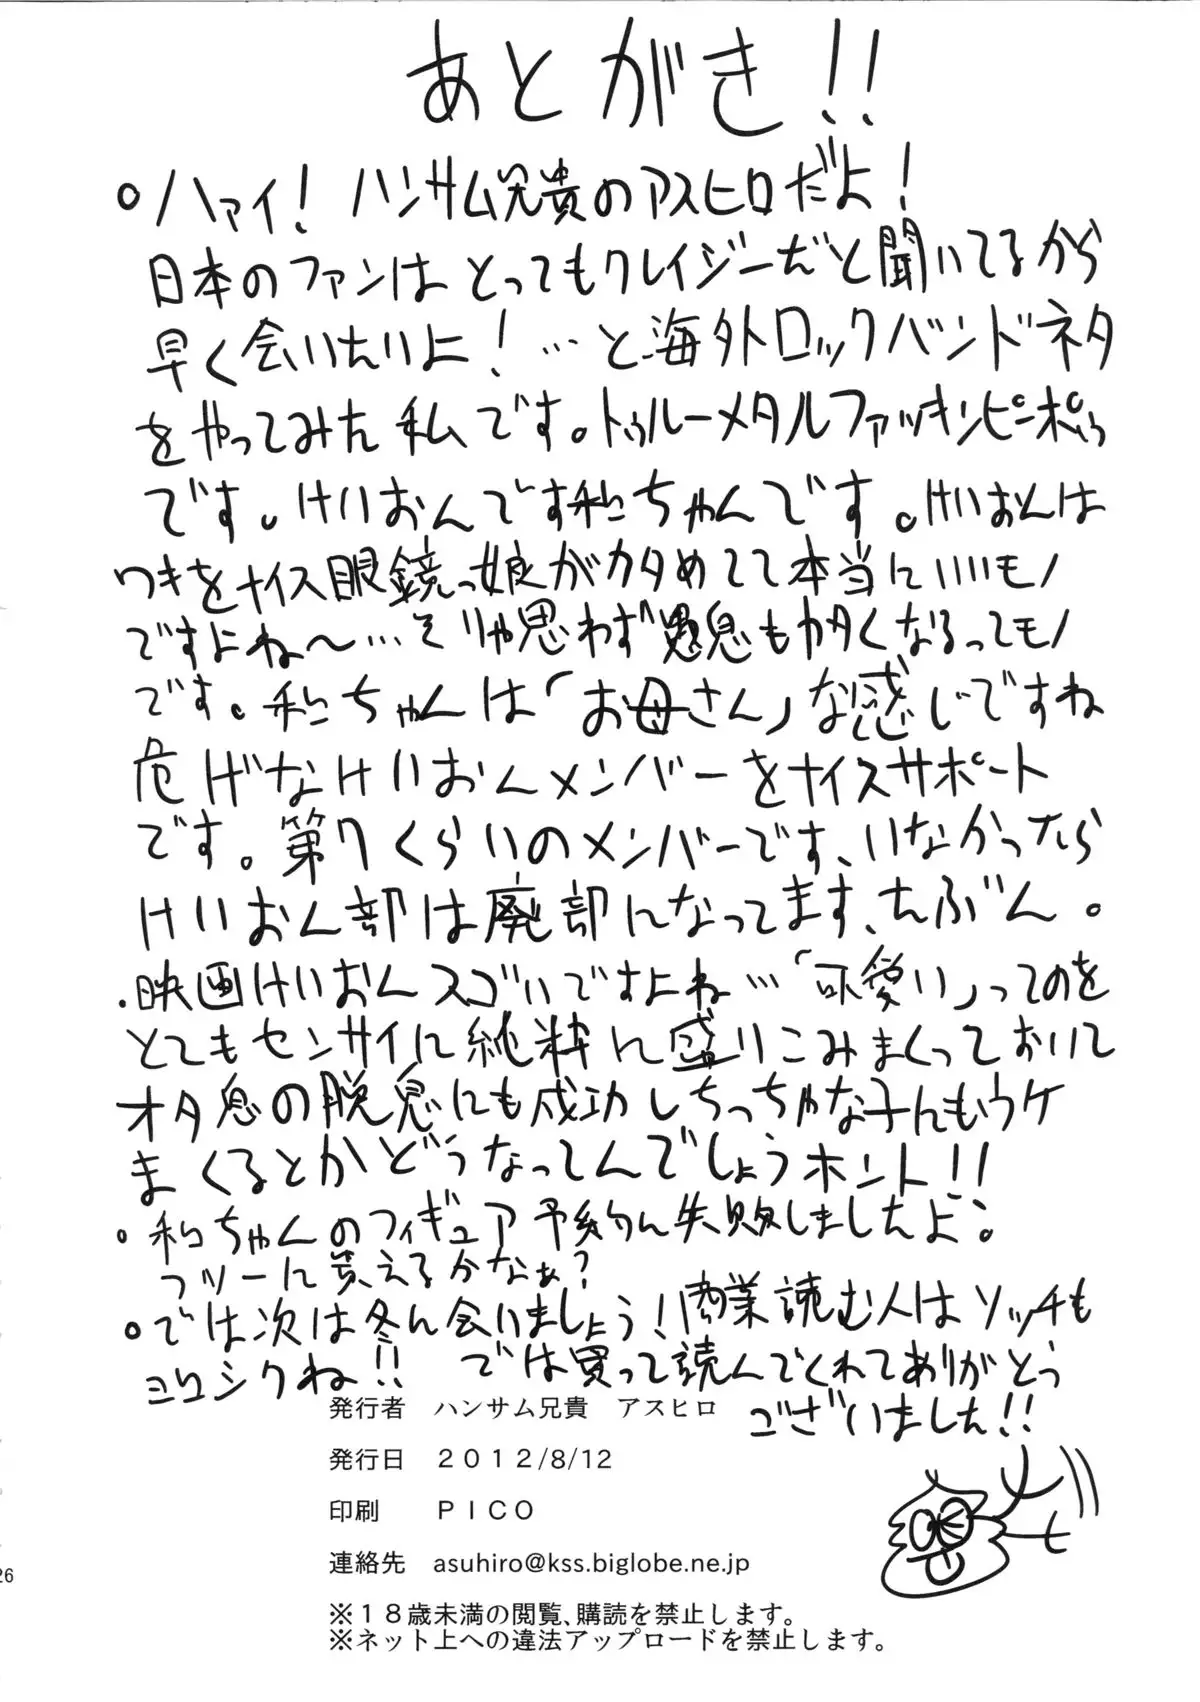 あとがき!!
。ハァイ!ハンサム兄貴のアスヒロだよ!
日本のファンはとってもクレイジーだと聞いてるから
早く会いたいよ!…と海外ロックバンドネタ
をやってみた私です。トゥルーメタルファッキンピーポゥ
です。けいおんです和ちゃんです。けいおんは
ワキをナイス眼鏡っ娘がカタめてて本当にいいモノ
ですよね〜…そりゃ思わず愚息もカタくなるってモノ
です。和ちゃんは「お母さん」な感じですね
危げなけいおんメンバーをナイスサポート
です。第7くらいのメンバーです、いなかったら
けいおん部は廃部になってます、たぶん。
・映画けいおんスゴいですよね…「可愛い」ってのを
とてもセンサイに純粋に盛りこみまくっておいて
オタ息の脱息にも成功しちっちゃな子にもウケ
まくるとかどうなってんでしょうホント!!
。和ちゃんのフィギュア予約に失敗しましたよ。
フツーに買えるかなぁ?
。では次は冬に会いましょう!商業読む人はソッチも
ヨロシクね!! では買って読んでくれてありがとう
ございました!!
発行者 ハンサム兄貴 アスヒロ
発行日 2012/8/12
印刷 PICO
連絡先 asuhiro@kss.biglobe.ne.jp
※18歳未満の閲覧、購読を禁止します。
※ネット上への違法アップロードを禁止します。
26